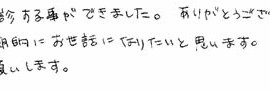 診する事ができました。 ありがとうござ
期的にお世話になりたいと思います。
願いします。